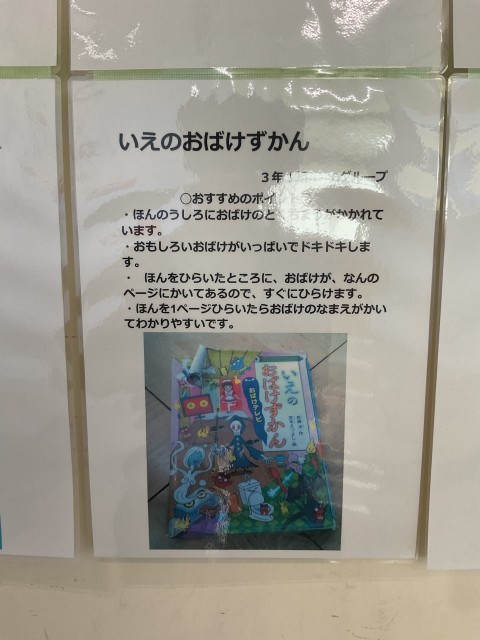 いえのおばけずかん
3年 グループ
○おすすめのポイント
・ほんのうしろにおばけのと がかかれて
います。
・おもしろいおばけがいっぱいでドキドキしま
す。
・ ほんをひらいたところに、おばけが、なんの
ページにかいてあるので、すぐにひらけます。
・ほんを1ページひらいたらおばけのなまえがかい
てわかりやすいです。
いえの
おばけずかん
おばけテレビ